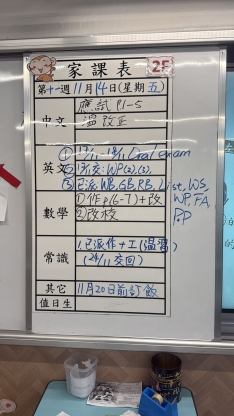 家課表 2F
第十一週 11月14日(星期五)
中文
應試 P1-5
溫 改正
英文
① 17/11 - 19/11 Oral exam
② 交: WP(2), (3),
③ 已派 WB, GB, RB, List, WS,
WP, FA,
PP
數學
① 作 p(6-7)+改
② 改校
常識
1. 已派作+工(溫習)
(24/11 交回)
其它
11月20日前訂飯
值日生